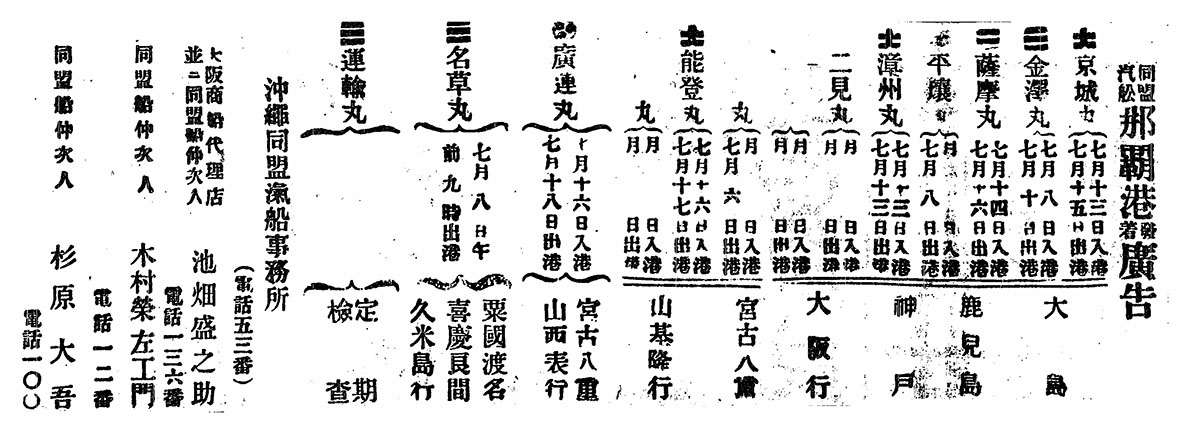 同盟汽舩那覇港發着廣告
京城丸
七月十三日入港
七月十五日出港
金澤丸
七月八日入港
七月十日出港
薩摩丸
七月十四日入港
七月十六日出港
平壤丸
月日入港
七月八日出港
漳州丸
七月十三日入港
七月十三日出港
二見丸
月日入港
月日出港
月日入港
月日出港
大島
鹿児島
神戸
大阪行
丸
七月六日
能登丸
七月十六日入港
七月十七日出港
丸
月日入港
月日出港
宮古八重
山基隆行
廣連丸
七月十六日入港
七月十八日出港
宮古八重
山西表行
名草丸
七月八日午
前九時出港
粟國渡名
喜慶良間
久米島行
運輸丸
定期
檢査
沖繩同盟滊船事務所
(電話五三番)
大阪商船代理店
並ニ同盟船仲次人
池畑盛之助
電話一三六番
同盟船仲次人
木村榮左工門
電話一二番
同盟船仲次人
杉原大吾
電話一〇〇